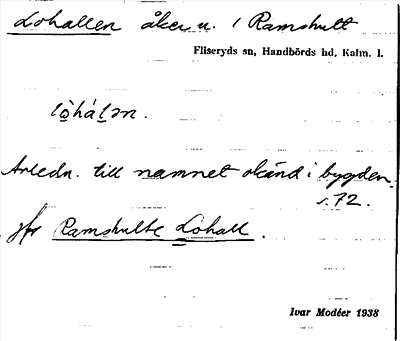 Lohallen åker u. / Ramshult
Fliseryds sn, Handbörds hd, Kalm. l.
lo̱hál̠ən.
Anledn. till namnet okänd i bygden.
s. 72.
jfr Ramshulte Lohall.
Ivar Modéer 1938